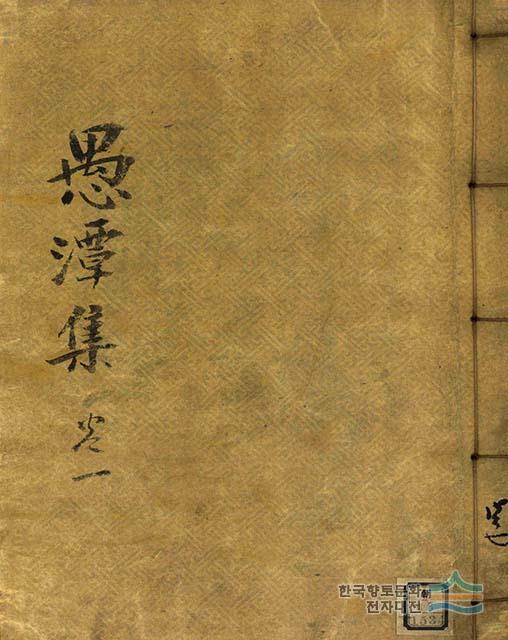 愚潭集 卷一
한국향토문화
전자대전
朝
1534